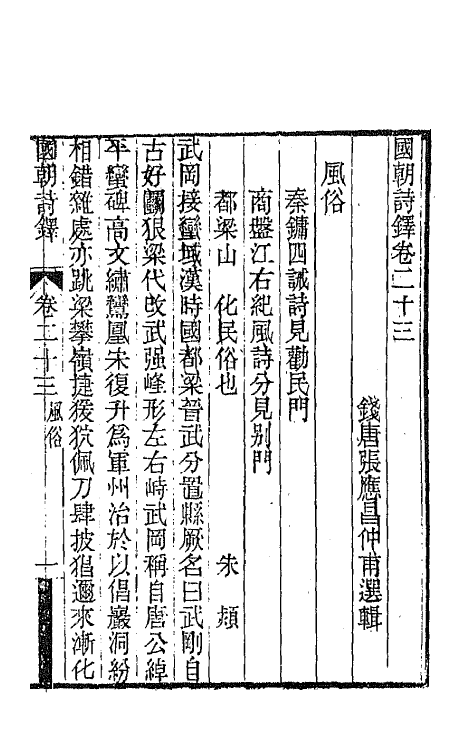 國朝詩鐸卷二十三
錢唐張應昌仲甫選輯
風俗
秦鏞四誡詩見勸民門
商盤江右紀風詩分見別門
都梁山　化民俗也　朱　頲
武岡接蠻域漢時國都梁晉武分置縣厥名曰武剛自
古好鬬狠梁代改武强峰形左右峙武岡稱自唐公綽
平蠻碑高文繡鸞凰朱復升為軍州治於以倡巖洞紛
相錯雜處亦跳梁攀嶺捷猨狖佩刀肆披猖邇來漸化
國朝詩鐸　卷二十三　風俗　一